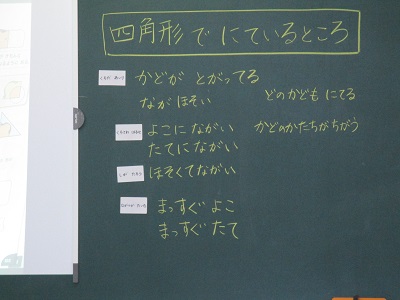 四角形でにているところ
かどが とがってる
ながほそい
どのかども にてる
よこにながい
かどのかたちがちがう
たてにながい
ほそくてながい
まっすぐ よこ
まっすぐ たて